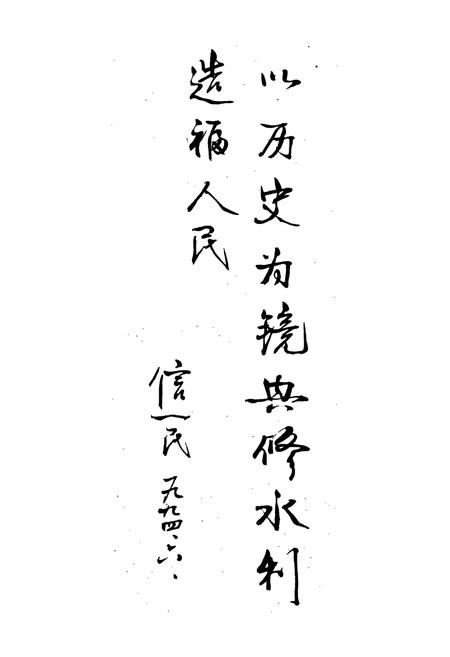 以历史为镜兴修水利
造福人民
信一民 一九九四、六、